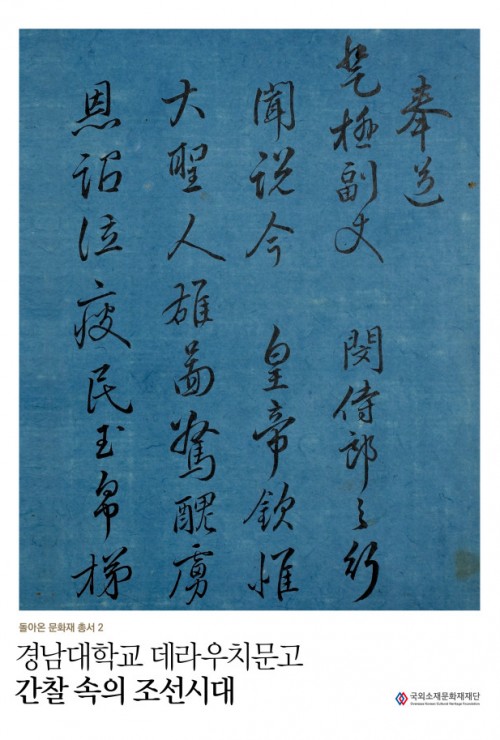 奉送
芝極副丈 閔侍郎之行
聞說今 皇帝欽惟
大聖人雄畧驚醜虜
恩詔泣疲民玉帛梯
돌아온 문화재 총서 2
경남대학교 데라우치문고
간찰 속의 조선시대
국외소재문화재재단
Overseas Korean Cultural Heritage Foundation